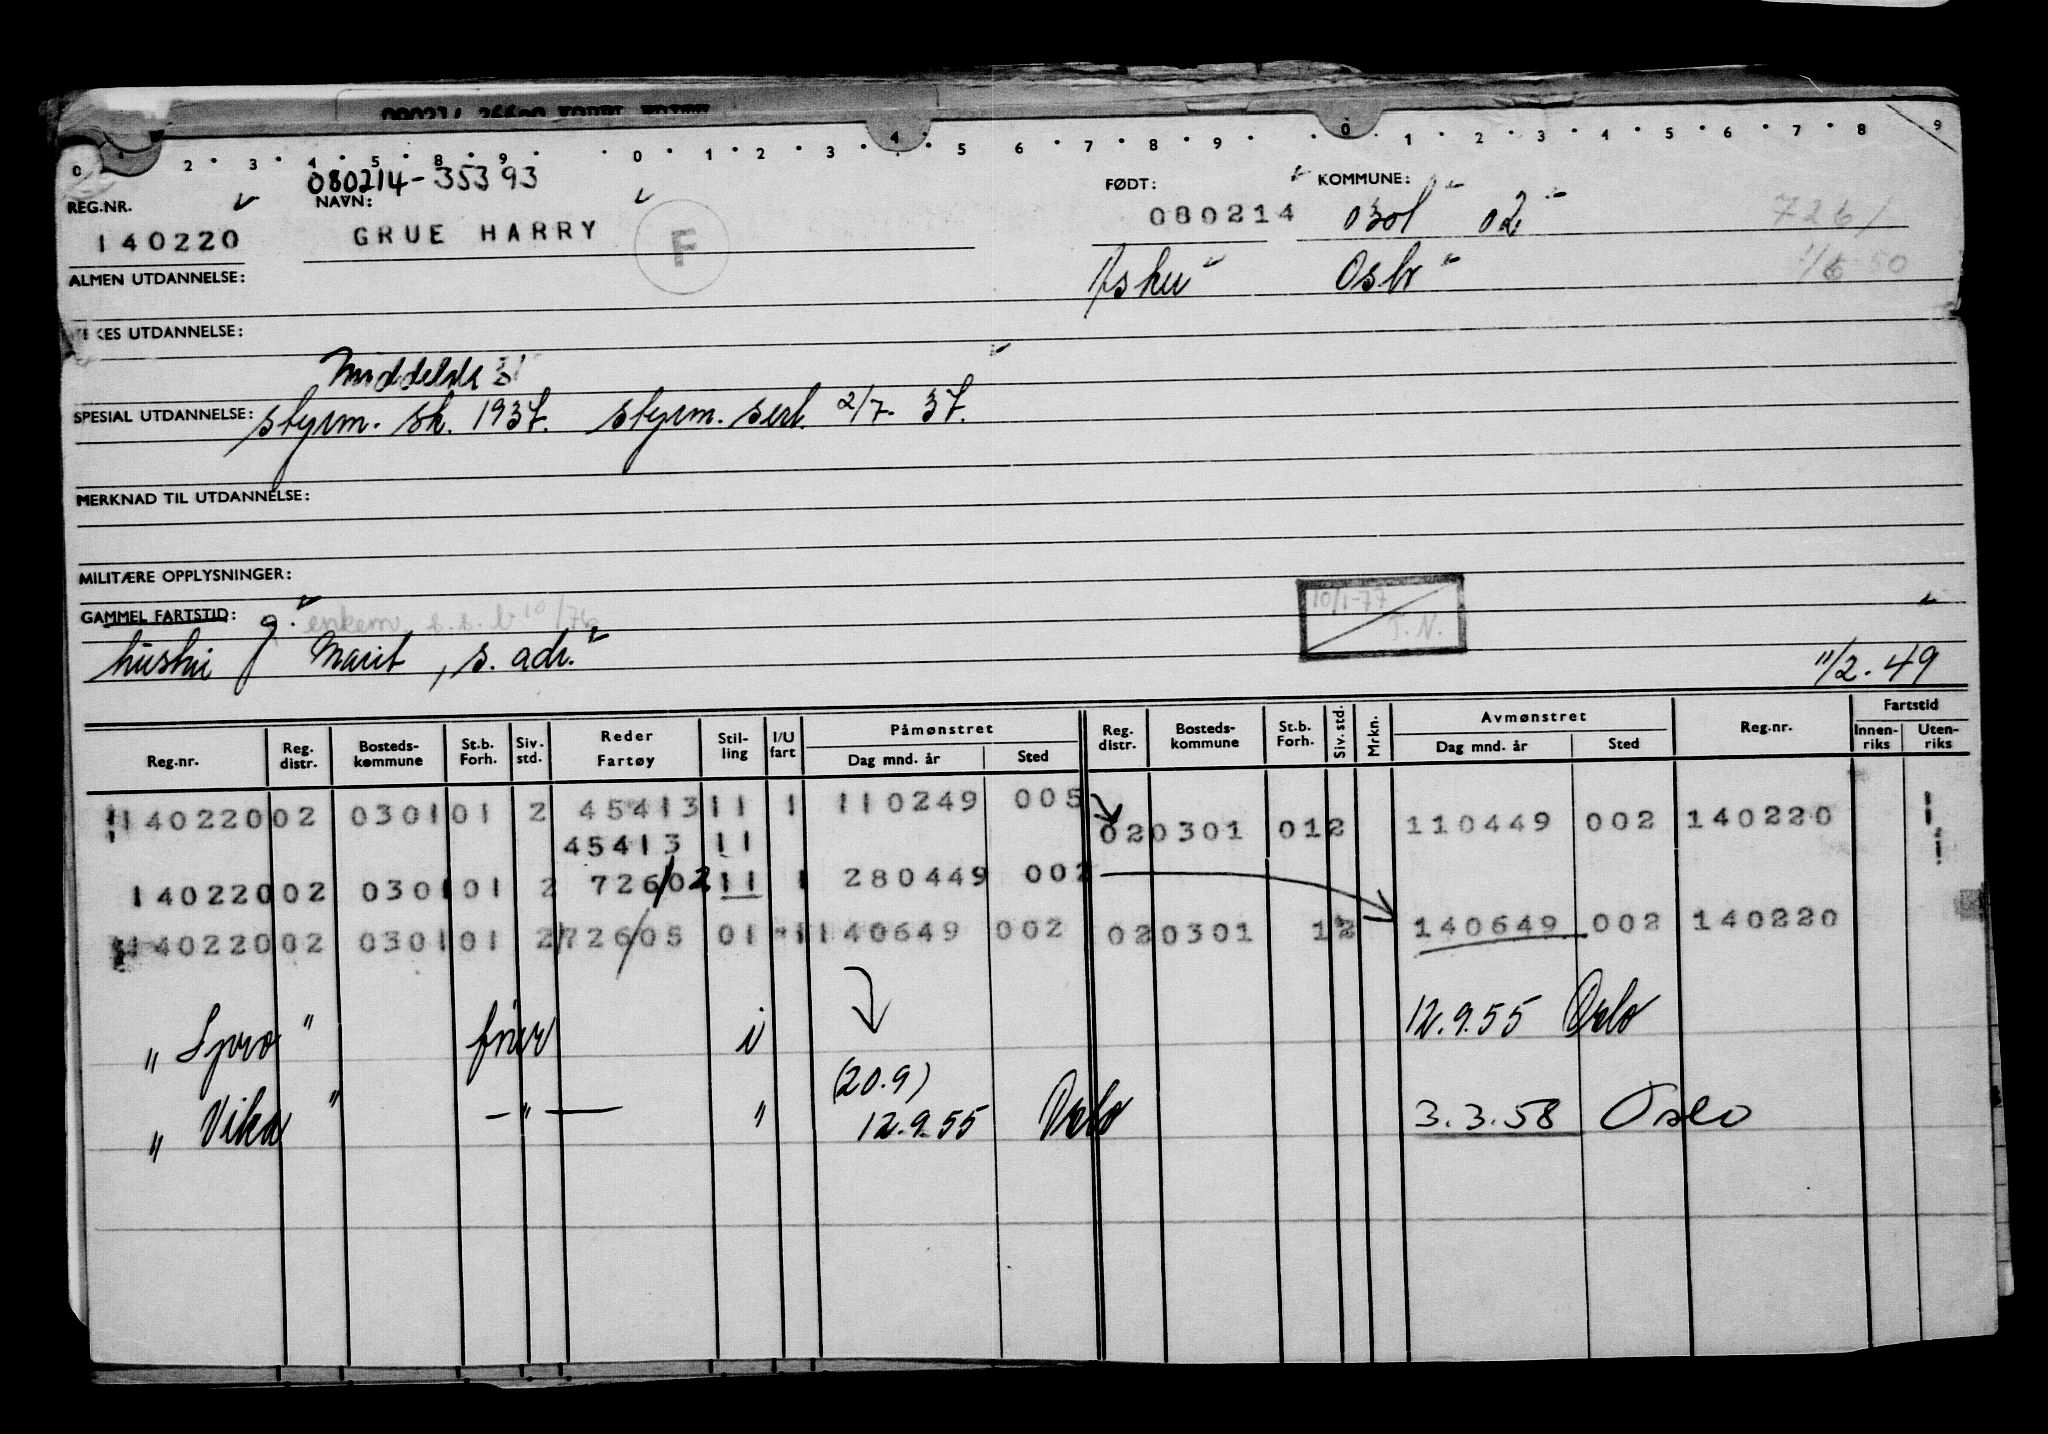 0 2 3 4 5 8 9 0 1 2 3 4 5 6 7 8 9 0 1 2 3 4 5 6 7 8 9
080214-35393
REG.NR. NAVN: FØDT: KOMMUNE:
140220 GRUE HARRY F 080214 0301 02 726/
ALMEN UTDANNELSE: Oslo 1/6 50
UTDANNELSE:
Middelsk 31
SPESIAL UTDANNELSE: styrm. sk. 1937. styrm. sert. 2/7. 37.
MERKNAD TIL UTDANNELSE:
MILITÆRE OPPLYSNINGER:
10/1-77
GAMMEL FARTSTID: g. 10/76 T.N.
hustru Marit, s. adr. 11/2.49
Reg.nr. Reg. distr. Bosteds-kommune St.b. Forh. Siv. std. Reder Fartøy Stil-ling I/U fart Påmønstret Dag mnd. år Sted Reg. distr. Bosteds-kommune St.b. Forh. Siv. std. Mrkn. Avmønstret Dag mnd. år Sted Reg.nr. Fartstid Innen-riks Uten-riks
140220 02 0301 01 2 45413 11 1 110249 005 02 0301 01 2 110449 002 140220 1
45413 11
140220 02 0301 01 2 72602 11 1 280449 002
140220 02 0301 01 2 72605 01 1 140649 002 02 0301 1 2 140649 002 140220
" Spro " i 12.9.55 Oslo
(20.9)
" Vika " - " - " 12.9.55 Oslo 3.3.58 Oslo